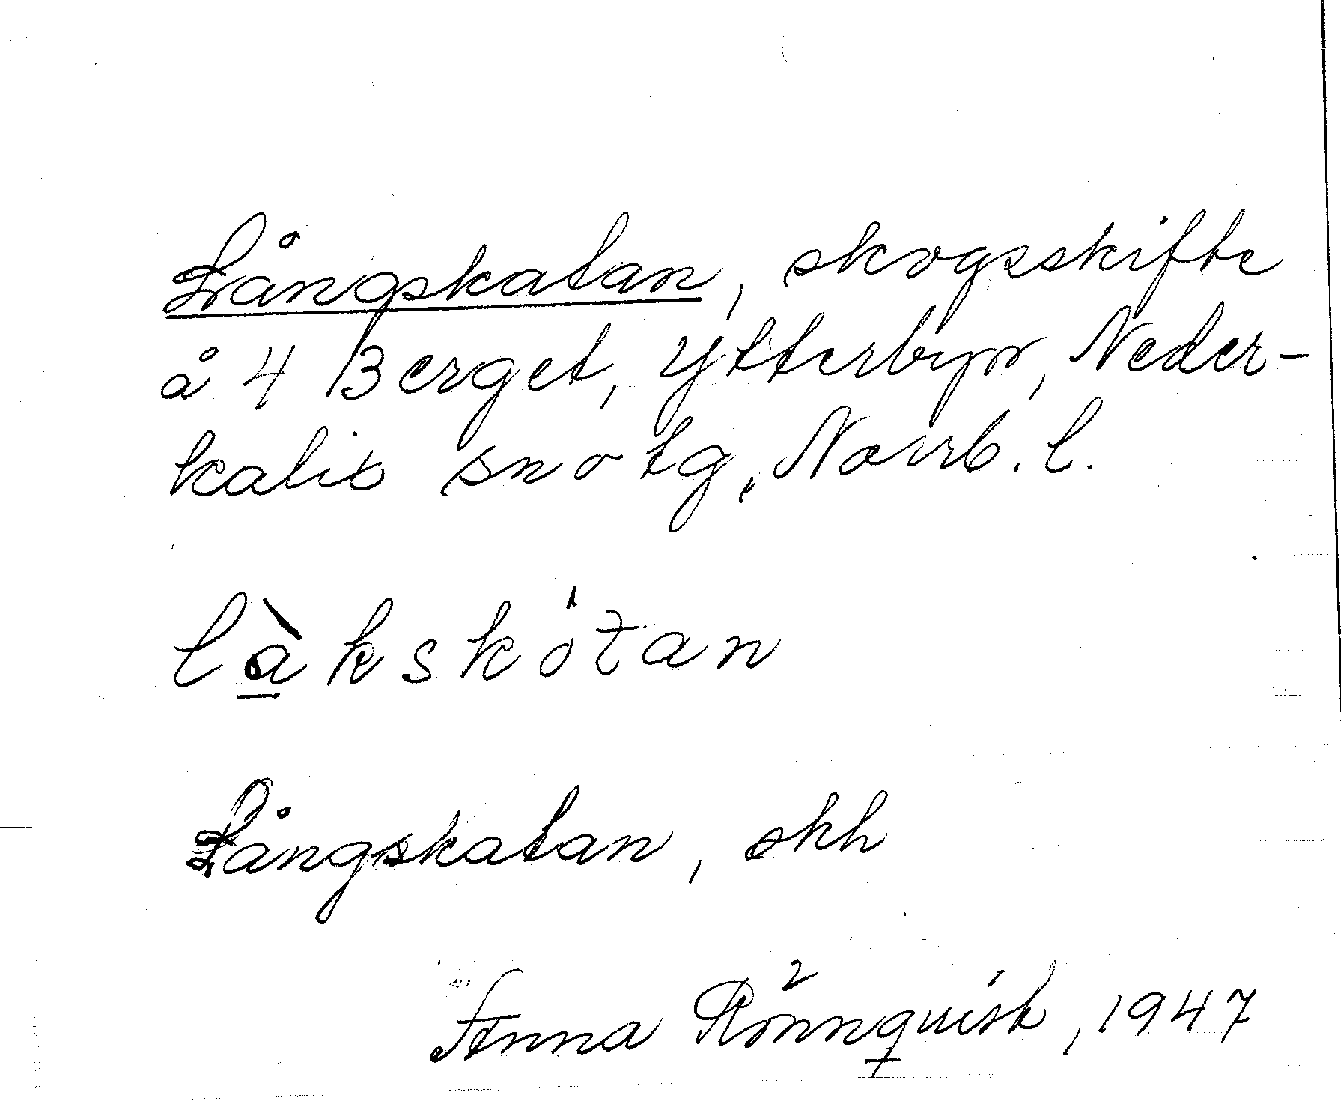 Långskatan, skogsskifte
å 4 Berget, Ytterbyn, Neder-
kalix sn o tg, Norrb. l.
là̱kskȯ́tan
Långskatan, skh
Anna Rönnquist, 1947